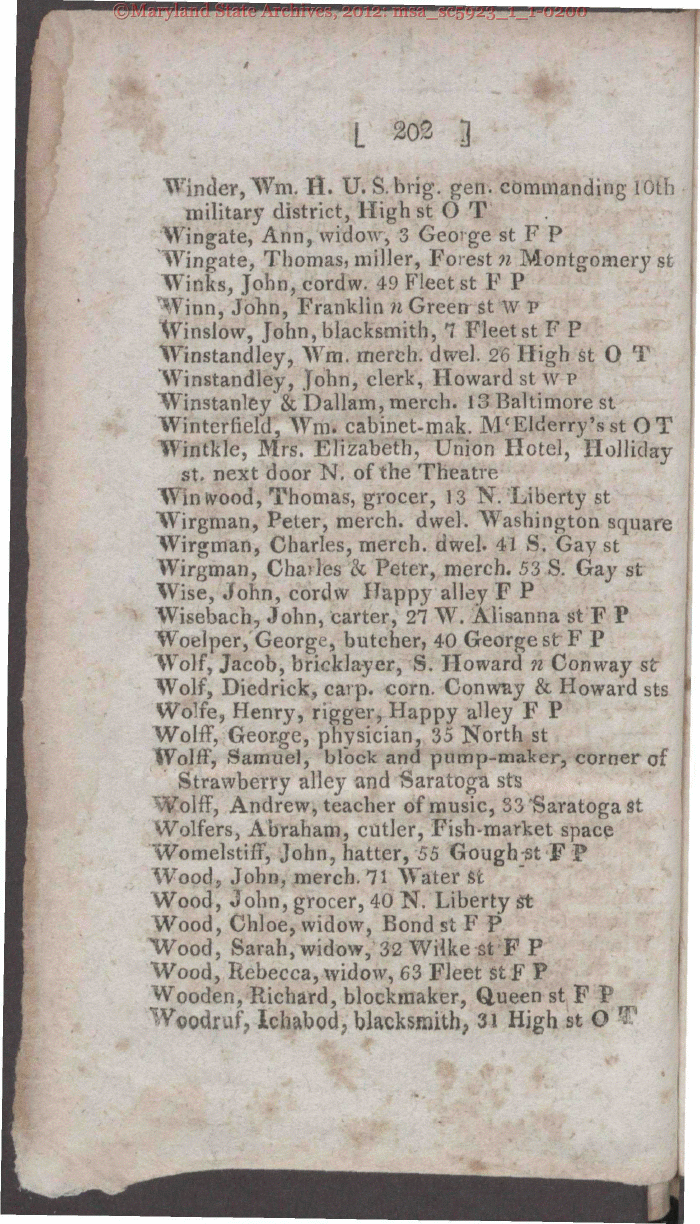 ©Maryland State Archives, 2012: msa_sc5923_1_1-0200
[ 202 ]
Winder, Wm. H. U. S. brig. gen. commanding 10th
military district, High st O T
Wingate, Ann, widow, 3 George st F P
Wingate, Thomas, miller, Forest n Montgomery st
Winks, John, cordw. 49 Fleet st F P
Winn, John, Franklin n Green st W P
Winslow, John, blacksmith, 7 Fleet st F P
Winstandley, Wm. merch. dwel. 26 High st O T
Winstandley, John, clerk, Howard st W P
Winstanley & Dallam, merch. 13 Baltimore st
Winterfield, Wm. cabinet-mak. M'Elderry's st O T
Wintkle, Mrs. Elizabeth, Union Hotel, Holliday
st. next door N. of the Theatre
Winwood, Thomas, grocer, 13 N. Liberty st
Wirgman, Peter, merch. dwel. Washington square
Wirgman, Charles, merch. dwel. 41 S. Gay st
Wirgman, Charles & Peter, merch. 53 S. Gay st
Wise, John, cordw Happy alley F P
Wisebach, John, carter, 27 W. Alisanna st F P
Woelper, George, butcher, 40 George st F P
Wolf, Jacob, bricklayer, S. Howard n Conway st
Wolf, Diedrick, carp. corn. Conway & Howard sts
Wolfe, Henry, rigger, Happy alley F P
Wolff, George, physician, 35 North st
Wolff, Samuel, block and pump-maker, corner of
Strawberry alley and Saratoga sts
Wolff, Andrew, teacher of music, 33 Saratoga st
Wolfers, Abraham, cutler, Fish-market space
Womelstiff, John, hatter, 55 Gough st F P
Wood, John, merch. 71 Water st
Wood, John, grocer, 40 N. Liberty st
Wood, Chloe, widow, Bond st F P
Wood, Sarah, widow, 32 Wilke st F P
Wood, Rebecca, widow, 63 Fleet st F P
Wooden, Richard, blockmaker, Queen st F P
Woodruf, Ichabod, blacksmith, 31 High st O T